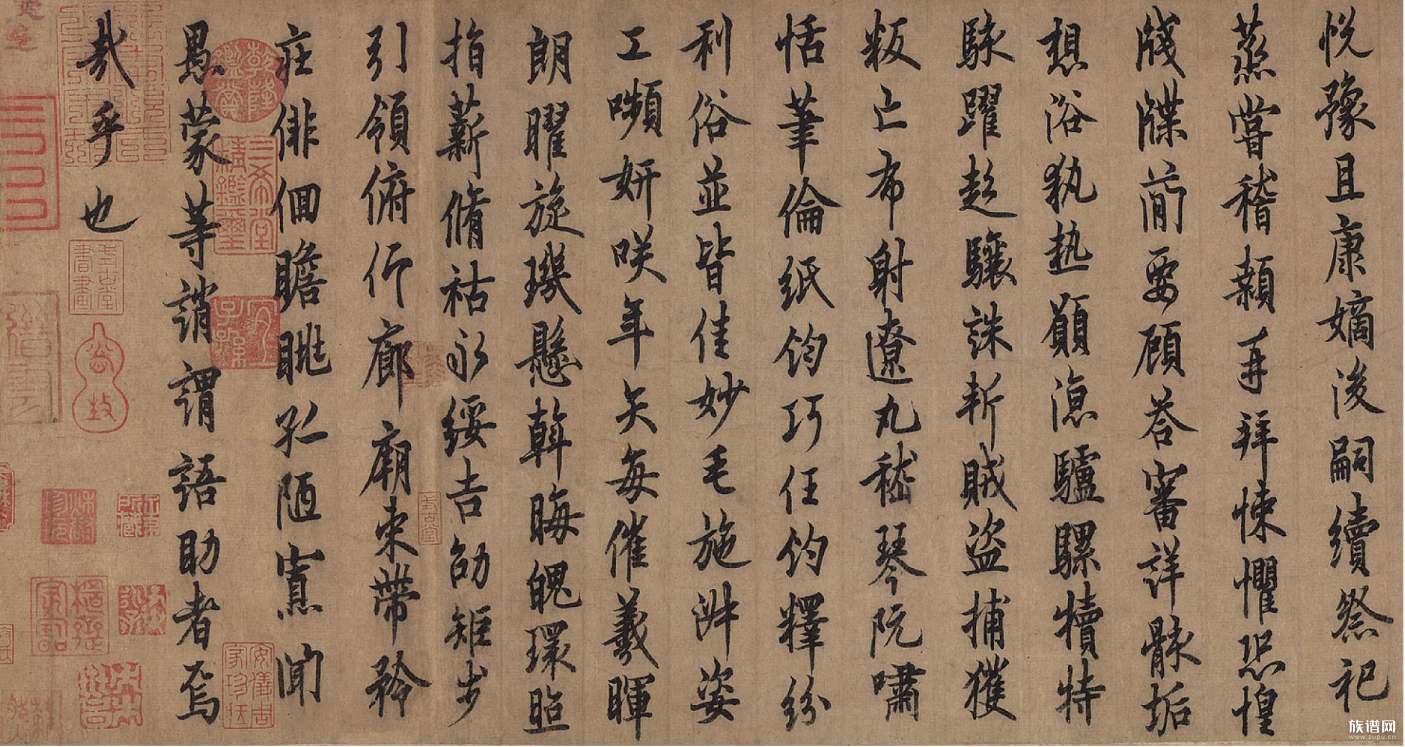 悦豫且康嫡後嗣續祭祀
蒸嘗稽顙再拜悚懼恐惶
牋牒蕳要顧荅審詳骸垢
想浴執熱願涼驢騾犢特
駭躍超驤誅斬賊盜捕獲
叛亡布射遼丸嵇琴阮嘯
恬筆倫紙鈞巧任釣釋紛
利俗並皆佳妙毛施淑姿
工嚬妍咲年矢每催羲暉
朗曜旋璣懸斡晦魄環照
指薪脩祜永綏吉劭矩步
引領俯仰廊廟束帶矜
莊俳佪瞻眺孤陋寡聞
愚蒙等誚謂語助者焉
哉乎也
乾隆鑑賞
三希堂精鑑璽
宜子孫
安儀周家珍藏
族谱网
www.zupu.cn